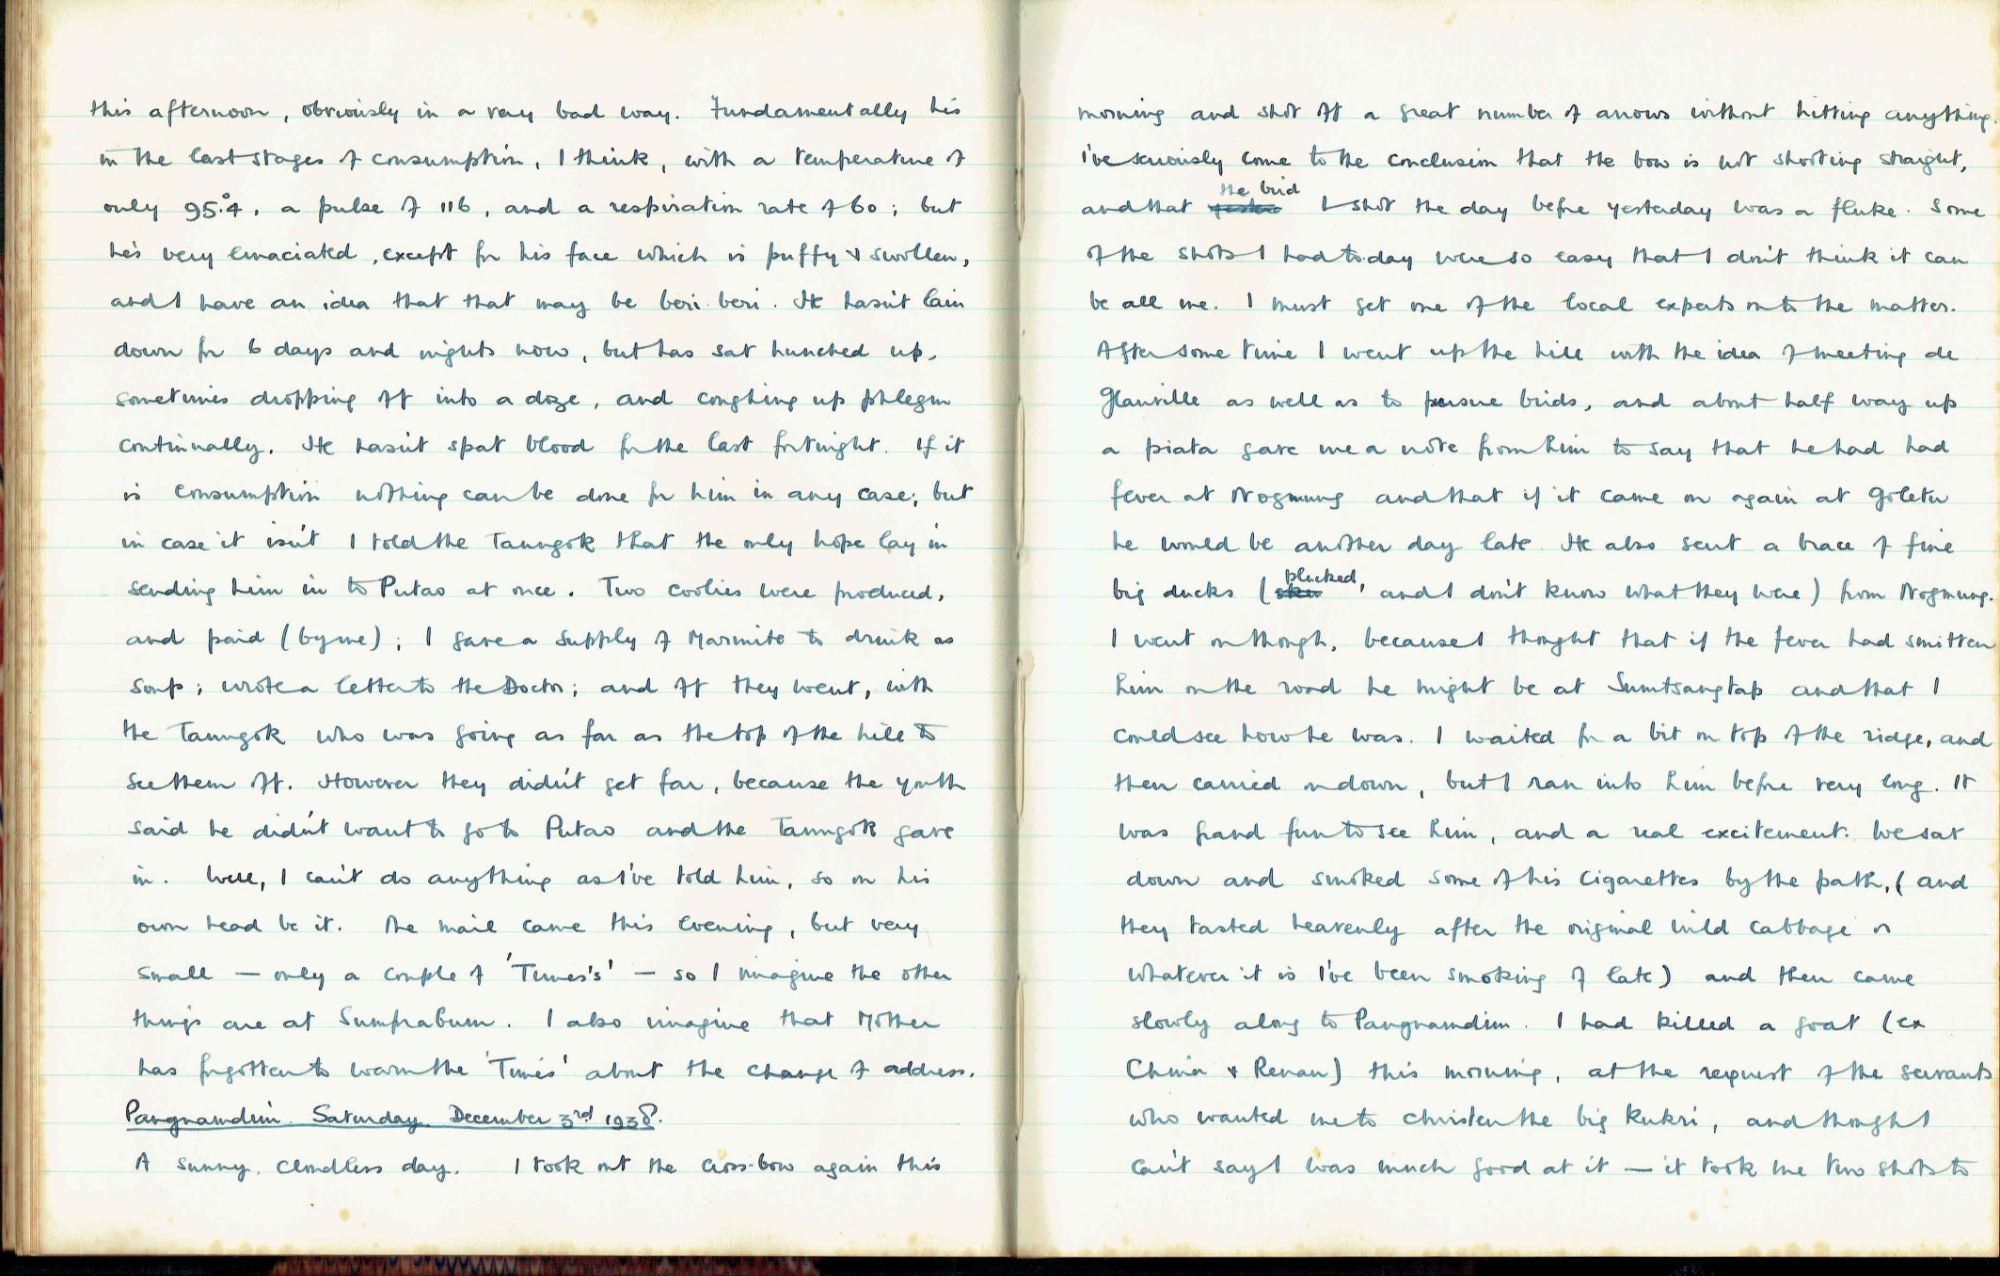 this afternoon, obviously in a very bad way. Fundamentally his
in the last stages of consumption, I think, with a temperature of
only 95.°4, a pulse of 116, and a respiration rate of 60; but
he's very emaciated, except for his face which is puffy & swollen,
and I have an idea that that may be beri beri. He hasn't lain
down for 6 days and nights now, but has sat hunched up,
sometimes dropping off into a doze, and coughing up phlegm
continually. He hasn't spat blood for the last fortnight. If it
is consumption nothing can be done for him in any case; but
in case it isn't I told the Taungok that the only hope lay in
sending him in to Putao at once. Two coolies were produced,
and paid (by me); I gave a supply of Marmite to drink as
soup; wrote a letter to the Doctor; and off they went, with
the Taungok who was going as far as the top of the hill to
see them off. However they didn't get far, because the youth
said he didn't want to go to Putao and the Taungok gave
in. Well, I can't do anything as I've told him, so on his
own head be it. The mail came this evening, but very
small — only a couple of 'Times's' — so I imagine the other
things are at Sumprabum. I also imagine that Mother
has forgotten to warn the 'Times' about the change of address.
Pangnamdim. Saturday. December 3rd 1938.
A sunny, cloudless day. I took out the cross-bow again this
morning and shot off a great number of arrows without hitting anything.
I've seriously come to the conclusion that the bow is not shooting straight,
and that the bird I shot the day before yesterday was a fluke. Some
of the shots I had today were so easy that I don't think it can
be all me. I must get one of the local experts onto the matter.
After some time I went up the hill with the idea of meeting de
Glanville as well as to pursue birds, and about half way up
a piata gave me a note from him to say that he had had
fever at Nogmung and that if it came on again at Goletu
he would be another day late. He also sent a brace of fine
big ducks (plucked, and I don't know what they were) from Nogmung.
I went on though, because I thought that if the fever had smitten
him on the road he might be at Sumtsangtap and that I
could see how he was. I waited for a bit on top of the ridge, and
then carried on down, but I ran into him before very long. It
was grand fun to see him, and a real excitement. We sat
down and smoked some of his cigarettes by the path, (and
they tasted heavenly after the original wild cabbage or
whatever it is I've been smoking of late) and then came
slowly along to Pangnamdim. I had killed a goat (ex
China & Renan) this morning, at the request of the servants
who wanted me to christen the big kukri, and though I
can't say I was much good at it — it took me two shots to